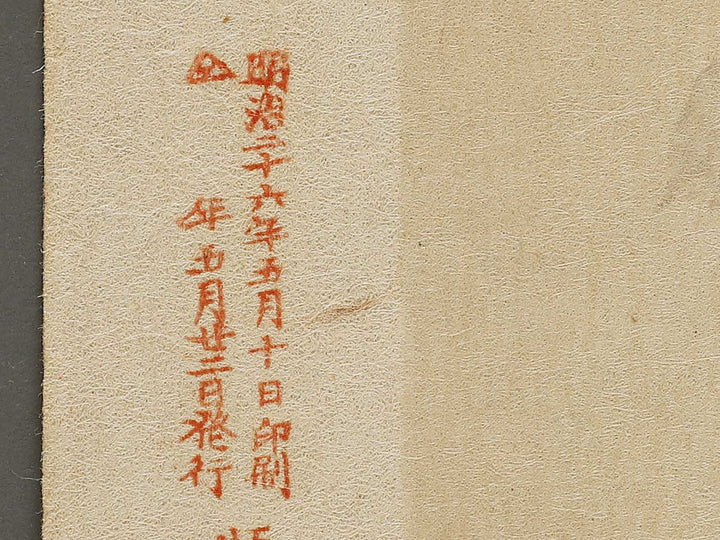 明治二十六年五月十日印刷
仝年五月廿三日発行